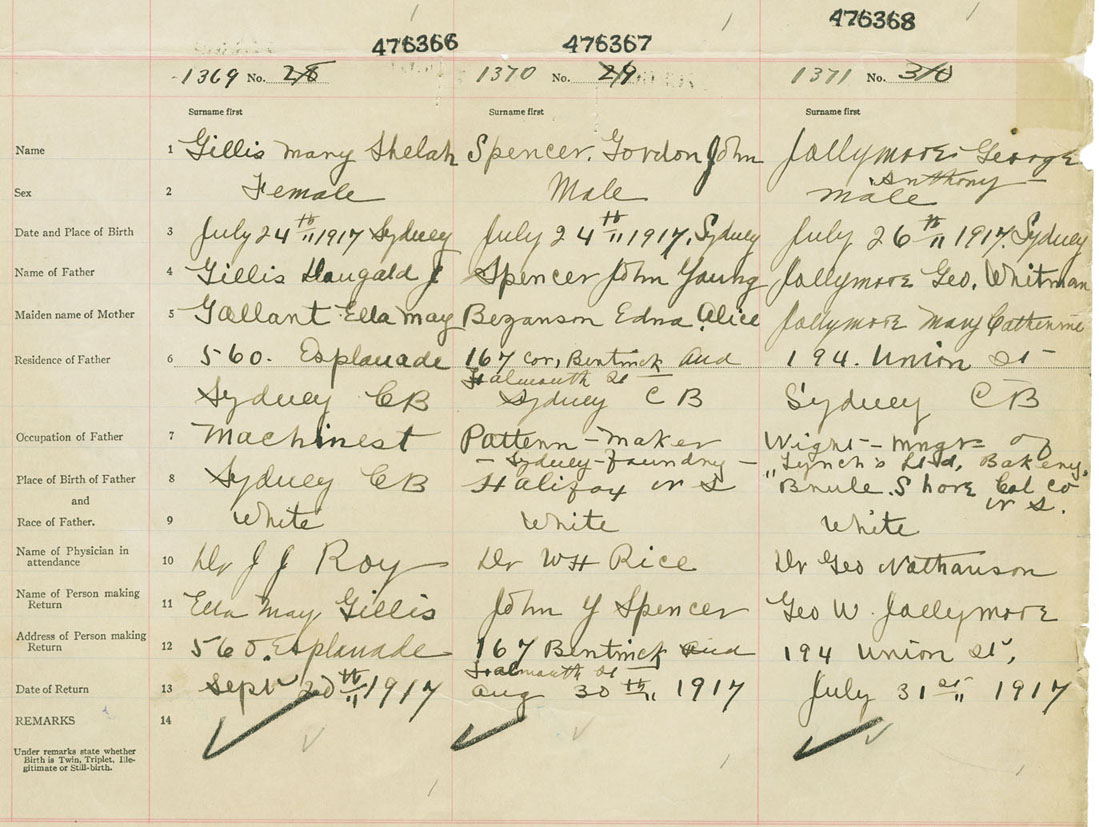 476366 476367 476368
1369 No. 28 1370 No. 29 1371 No. 30
Surname first Surname first Surname first
Name 1 Gillis Mary Shelah Spencer, Gordon John Jollymore George
Anthony
Sex 2 Female Male Male
Date and Place of Birth 3 July 24th 1917 Sydney July 24th 1917, Sydney July 26th 1917, Sydney
Name of Father 4 Gillis Daugald J Spencer John Young Jollymore Geo. Whitman
Maiden name of Mother 5 Gallant Ella May Bezanson Edna Alice Jollymore Mary Catherine
Residence of Father 6 560. Esplanade 167 Cor, Bentinck and 194. Union St
Falmouth St
Sydney CB Sydney CB Sydney CB
Occupation of Father 7 Machinest Pattern-maker Wight-mngr of
- Sydney-Foundry - "Lynch's Ltd, Bakery,
Place of Birth of Father 8 Sydney CB Halifax N S Brule Shore Col Co
and N S.
Race of Father. 9 White White White
Name of Physician in
attendance 10 Dr J J Roy Dr WH Rice Dr Geo Nathanson
Name of Person making
Return 11 Ella May Gillis John Y Spencer Geo W. Jollymore
Address of Person making
Return 12 560. Esplanade 167 Bentinck and 194 Union St,
Falmouth St
Date of Return 13 Sept 20th 1917 Aug 30th 1917 July 31st 1917
REMARKS 14
Under remarks state whether
Birth is Twin, Triplet, Ille-
gitimate or Still-birth.